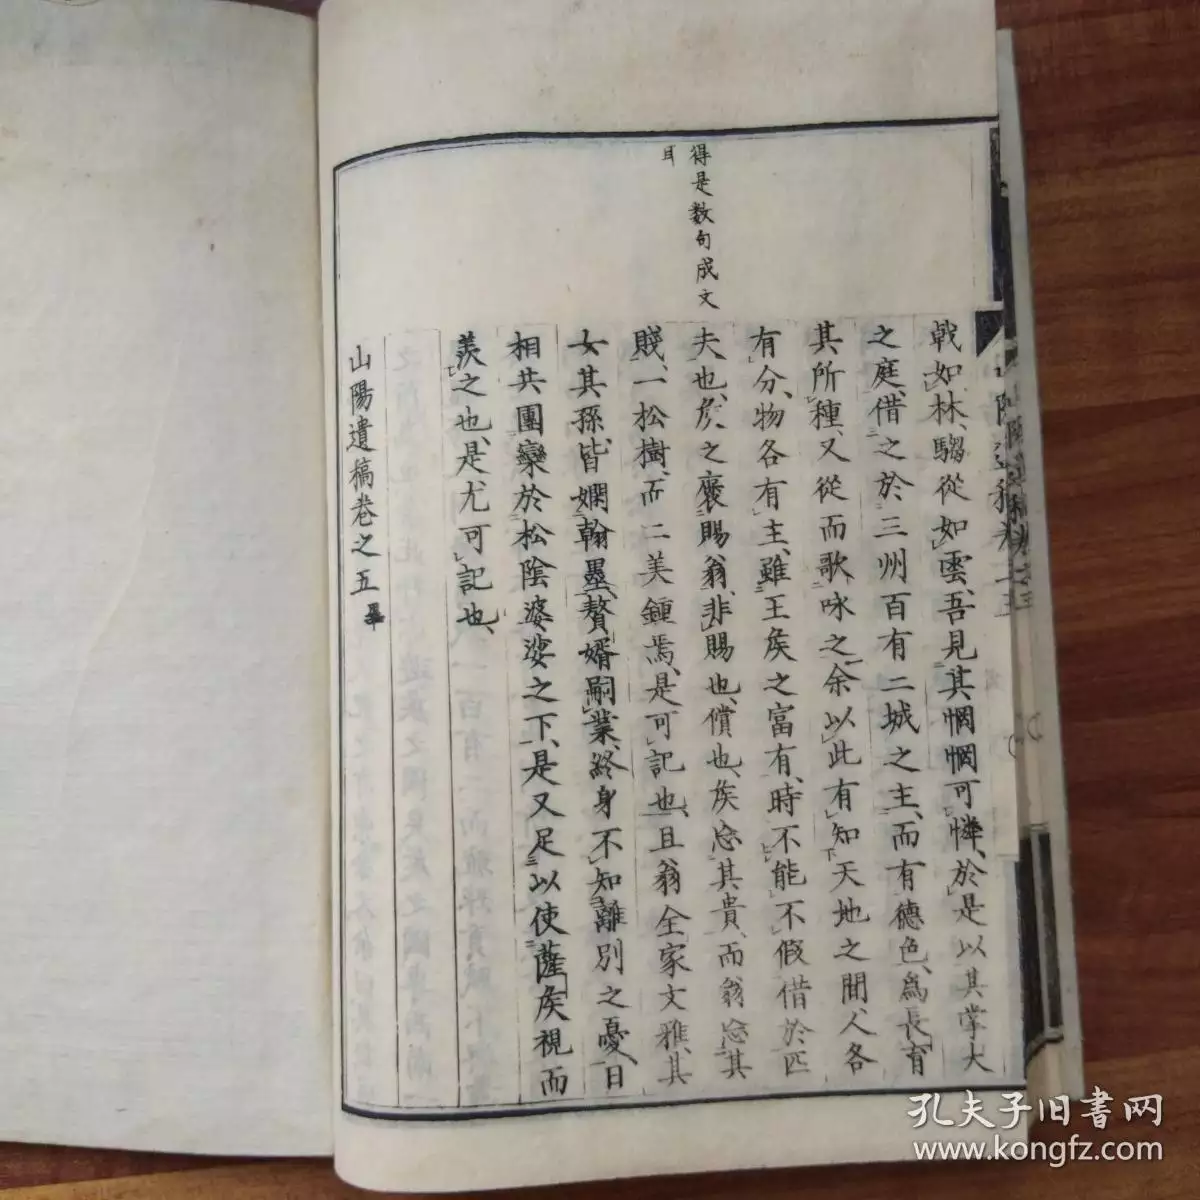 得是数句成文
耳
戟如林、騶從如雲、吾見其惘惘可憐、於是以其掌大
之庭、借之於三州百有二城之主、而有德色、為長育
其所種、又從而歌咏之、余以此有知天地之間、人各
有分、物各有主、雖王矦之富有、時不能不假借於匹
夫也、矦之褒賜翁、非賜也、償也、矦忘其貴、而翁忘其
賤、一松樹、而二美鍾焉、是可記也、且翁全家文雅、其
女其孫、皆嫻翰墨、贅婿嗣業、終身不知離別之憂、日
相共團欒於松陰婆娑之下、是又足以使薩矦視而
羨之也、是尤可記也、
山陽遺稿卷之五畢
孔夫子旧书网
www.kongfz.com